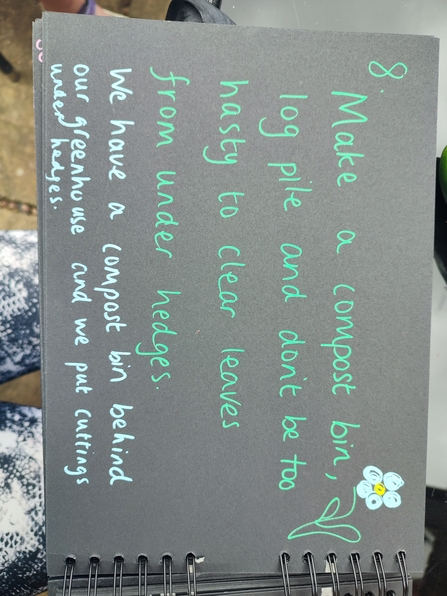 8.
Make a compost bin,
log pile and don't be too
hasty to clear leaves
from under hedges.
We have a compost bin behind
our greenhouse and we put cuttings
under hedges.